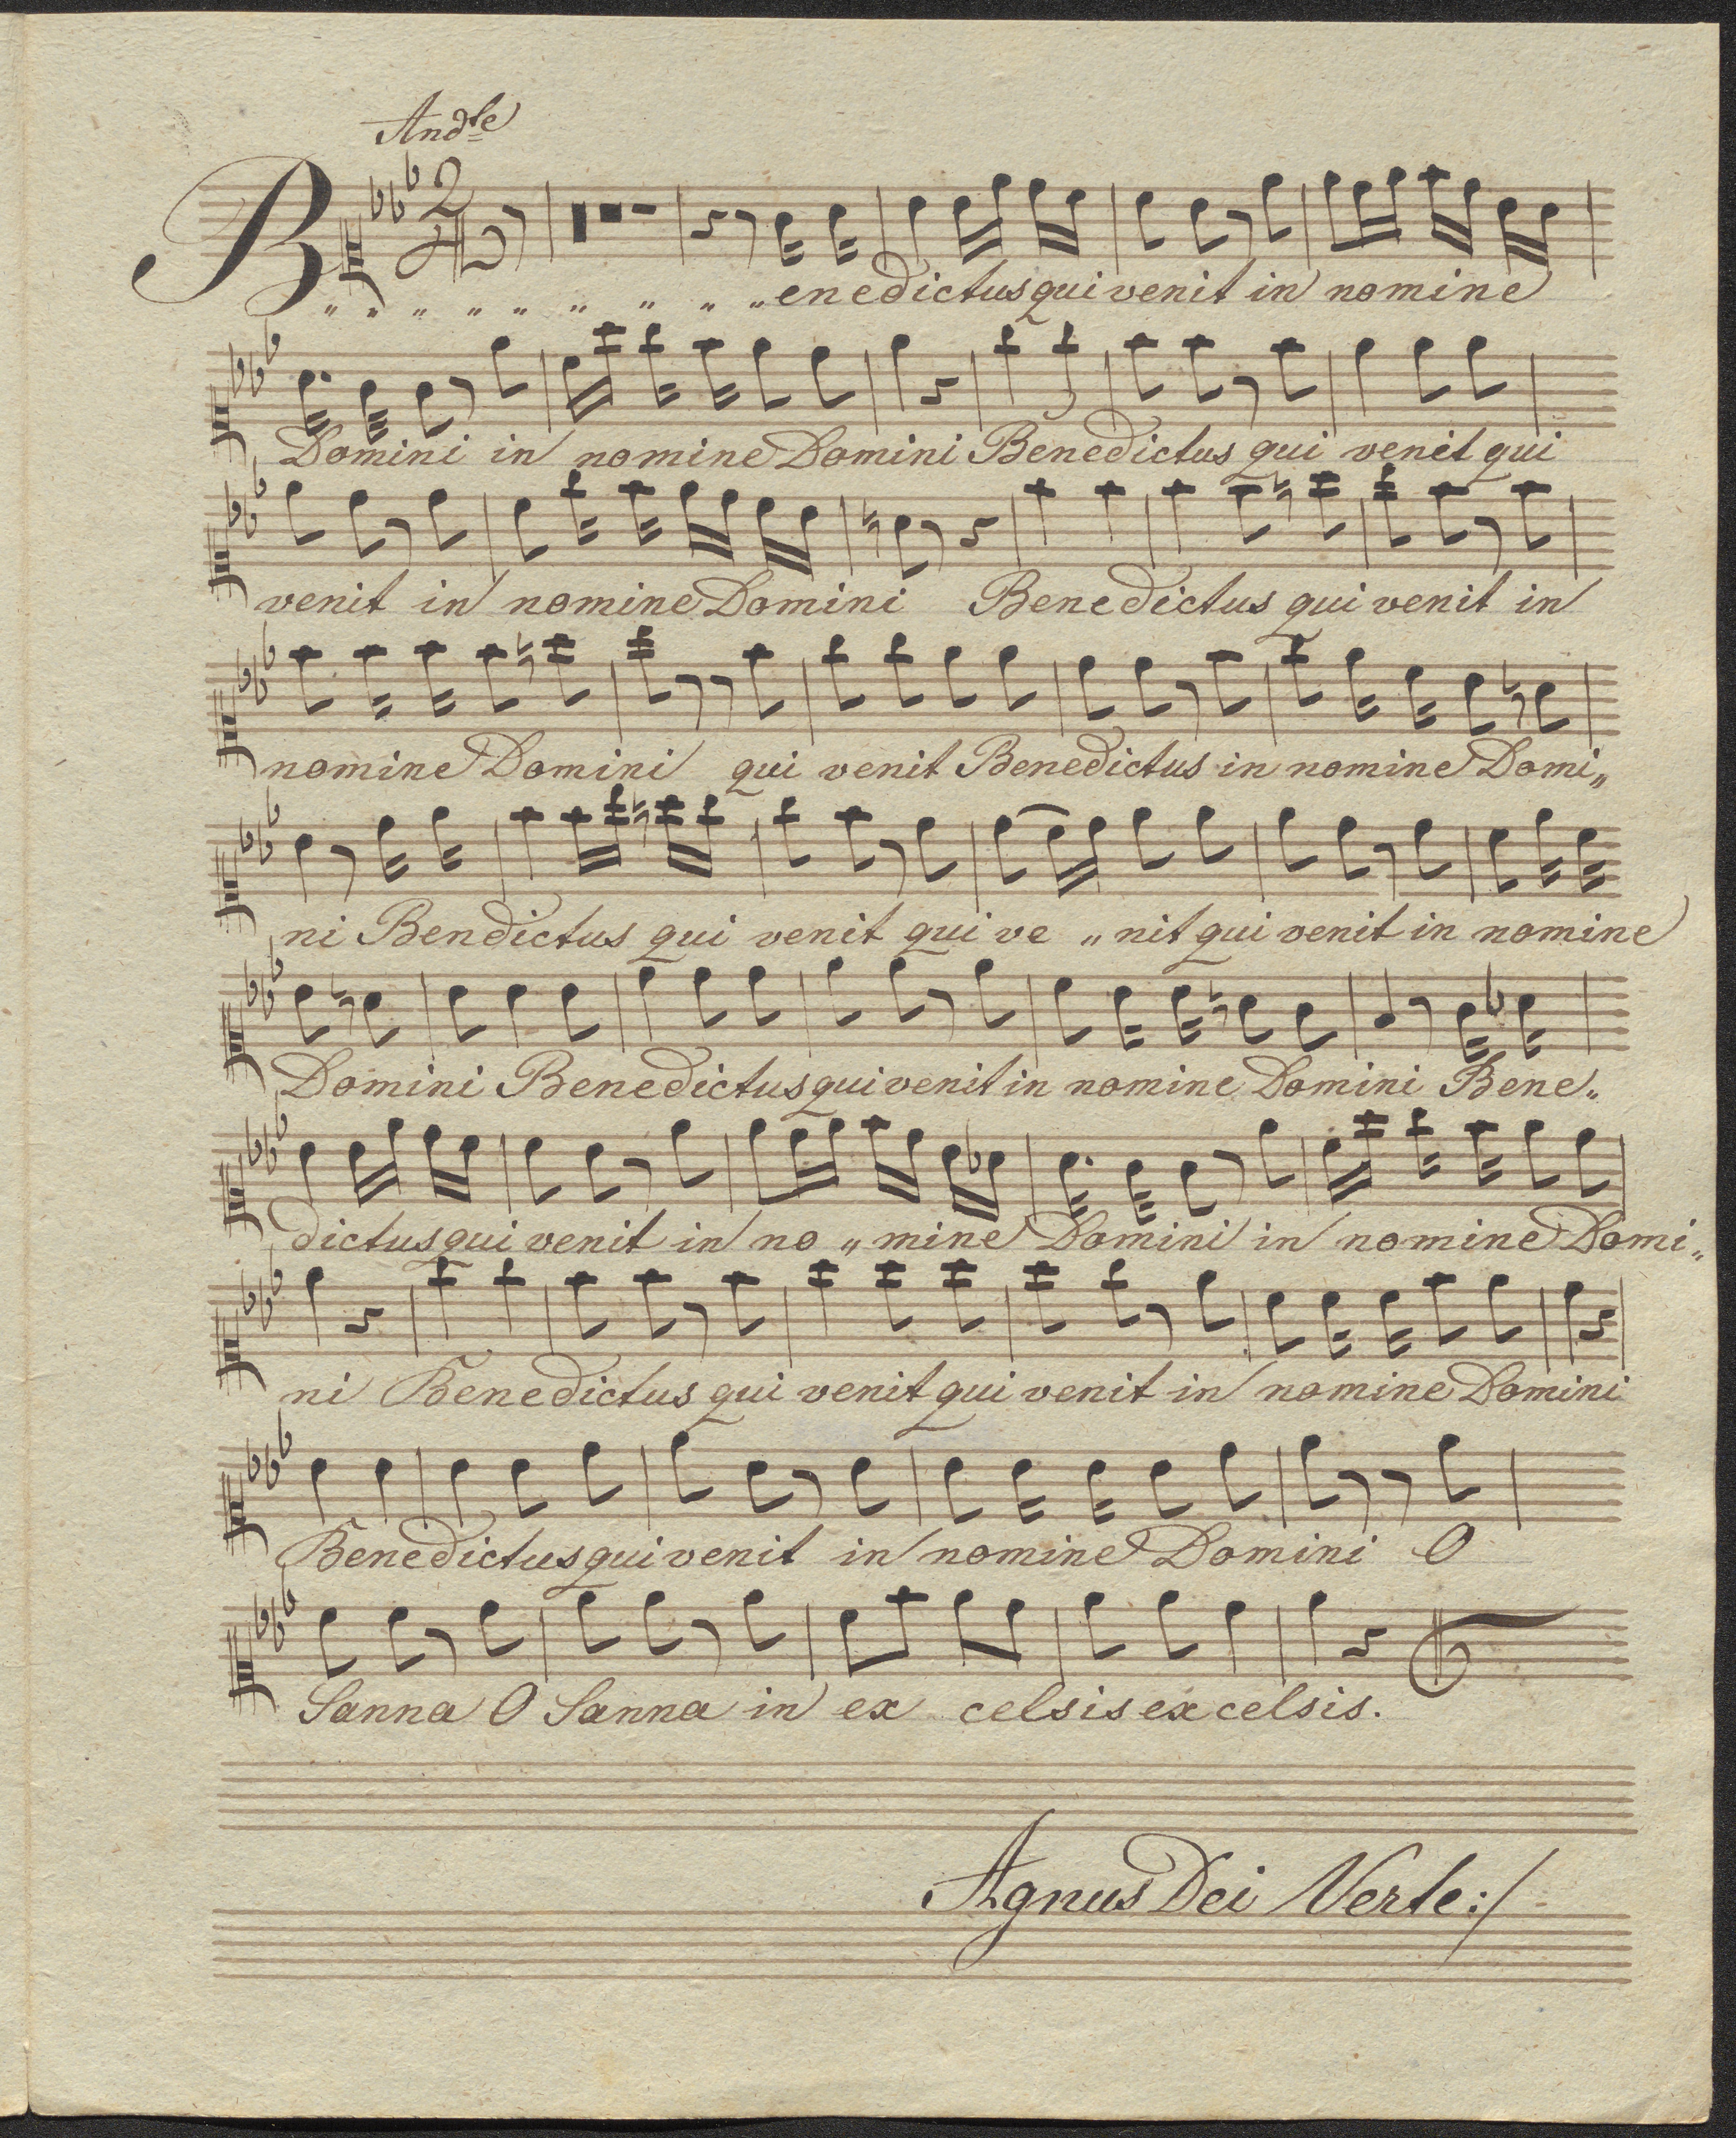 Andte
B " " " " " " " " " enedictus qui venit in nomine
Domini in nomine Domini Benedictus qui venit qui
venit in nomine Domini Benedictus qui venit in
nomine Domini qui venit Benedictus in nomine Domi„
ni Bendictus qui venit qui ve „ nit qui venit in nomine
Domini Benedictus qui venit in nomine Domini Bene„
dictus qui venit in no „ mine Domini in nomine Domi„
ni Benedictus qui venit qui venit in nomine Domini
Benedictus qui venit in nomine Domini O
Sanna O Sanna in ex celsis ex celsis.
Agnus Dei Verte:/